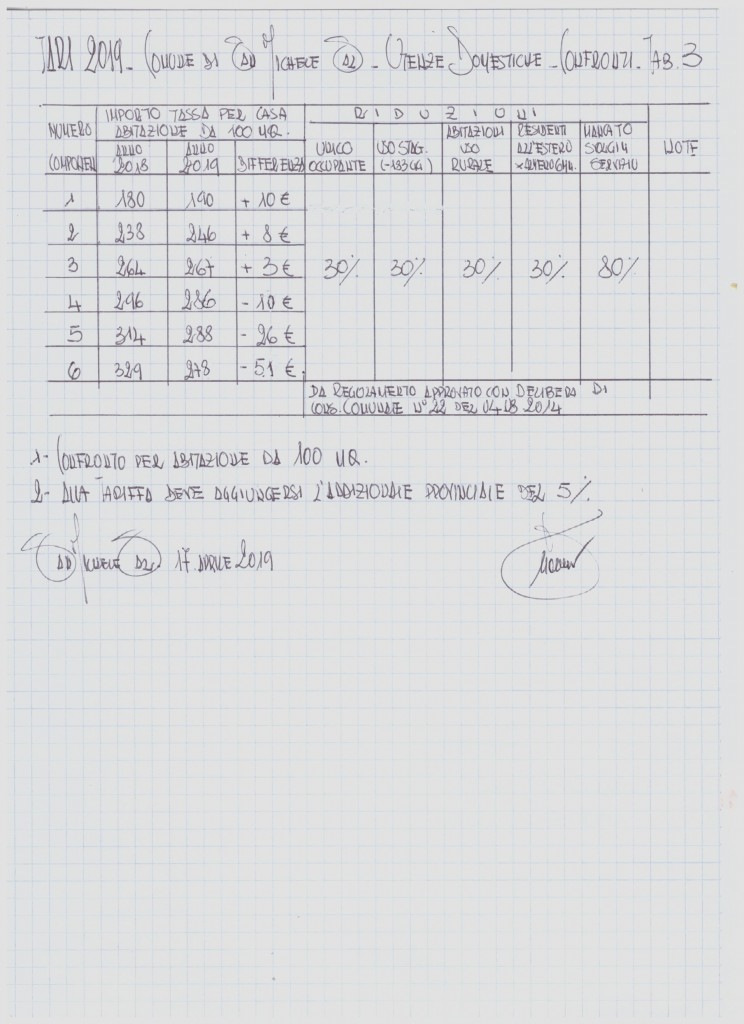 TARI 2019 - COMUNE DI SAN MICHELE SAL. - UTENZE DOMESTICHE - CONFRONTI - TAB. 3
NUMERO COMPONENTI
IMPORTO TASSA PER CASA
ABITAZIONE DA 100 MQ.
ANNO 2018
ANNO 2019
DIFFERENZA
RIDUZIONI
UNICO OCCUPANTE
USO STAG. (-183 GG)
ABITAZIONI USO RURALE
RESIDENTI ALL'ESTERO
MANCATO SVOLGIM. SERVIZIO
NOTE
1 180 190 + 10 €
2 238 246 + 8 €
3 264 267 + 3 € 30% 30% 30% 30% 80%
4 296 286 - 10 €
5 314 288 - 26 €
6 329 278 - 51 €
DA REGOLAMENTO APPROVATO CON DELIBERA DI
CONS. COMUNALE N° 22 DEL 04 08 2014
1- CONFRONTO PER ABITAZIONE DA 100 MQ.
2- ALLA TARIFFA DEVE AGGIUNGERSI L'ADDIZIONALE PROVINCIALE DEL 5%
SAN MICHELE SAL. 17 APRILE 2019